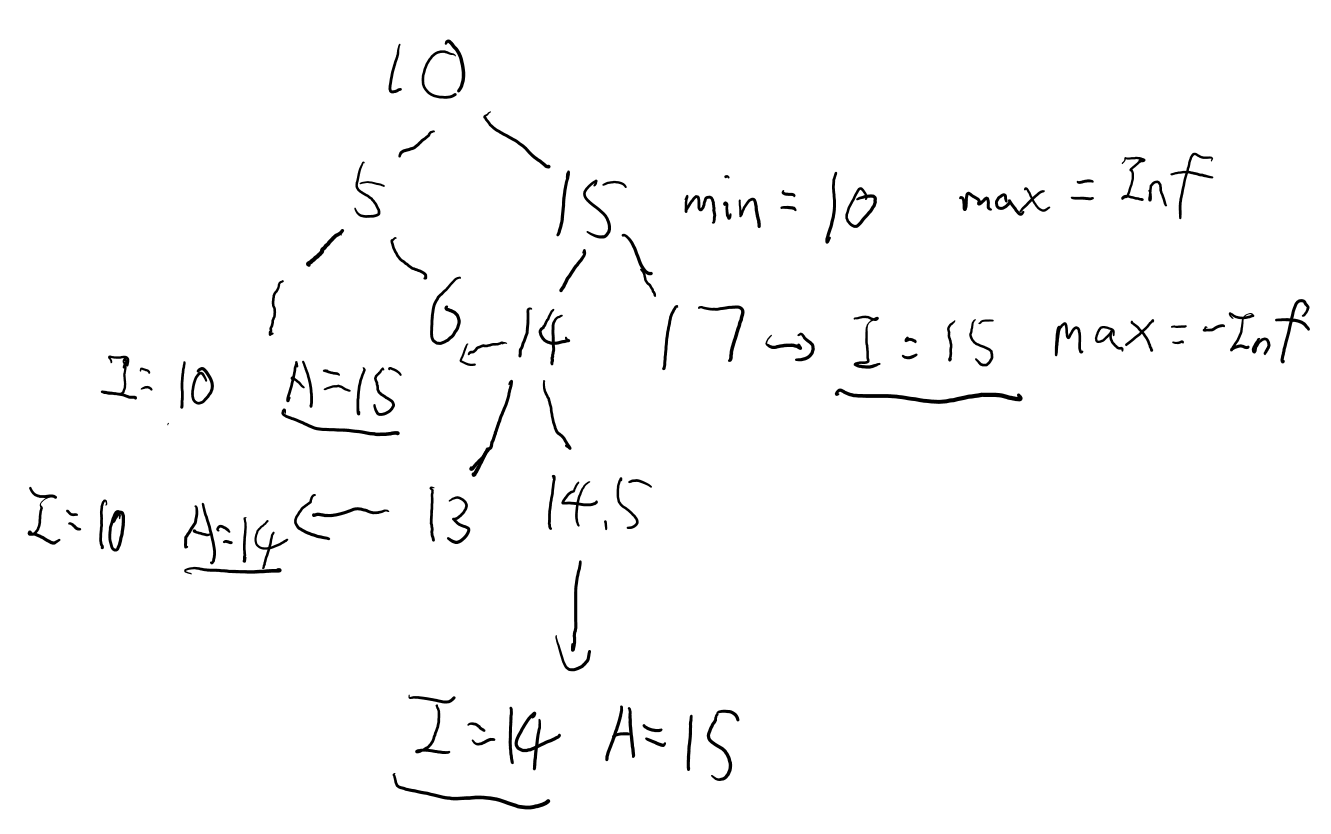 10
5 15 min = 10 max = Inf
1 6 14 17 → I = 15 max = -Inf
I = 10 A = 15
I = 10 A = 14 ← 13 14.5
I = 14 A = 15